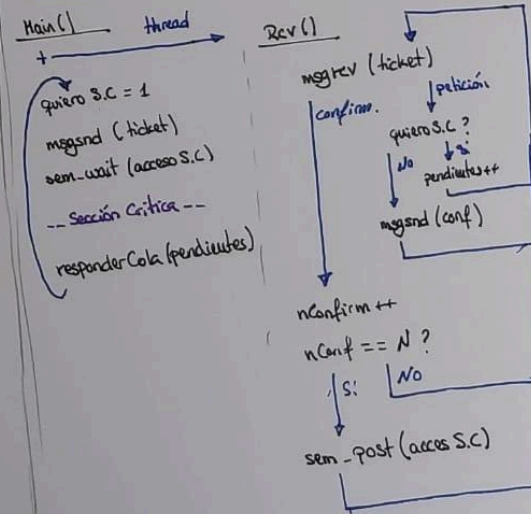 Main()
thread
quiero S.C = 1
msgsnd (ticket)
sem_wait (acceso S.C)
-- Sección Crítica --
responderCola (pendientes)
Rcv()
msgrcv (ticket)
confirm.
petición
quiero S.C ?
No
Si
pendientes++
msgsnd (conf)
nConfirm ++
nConf == N ?
Si
No
sem_post (acces S.C)